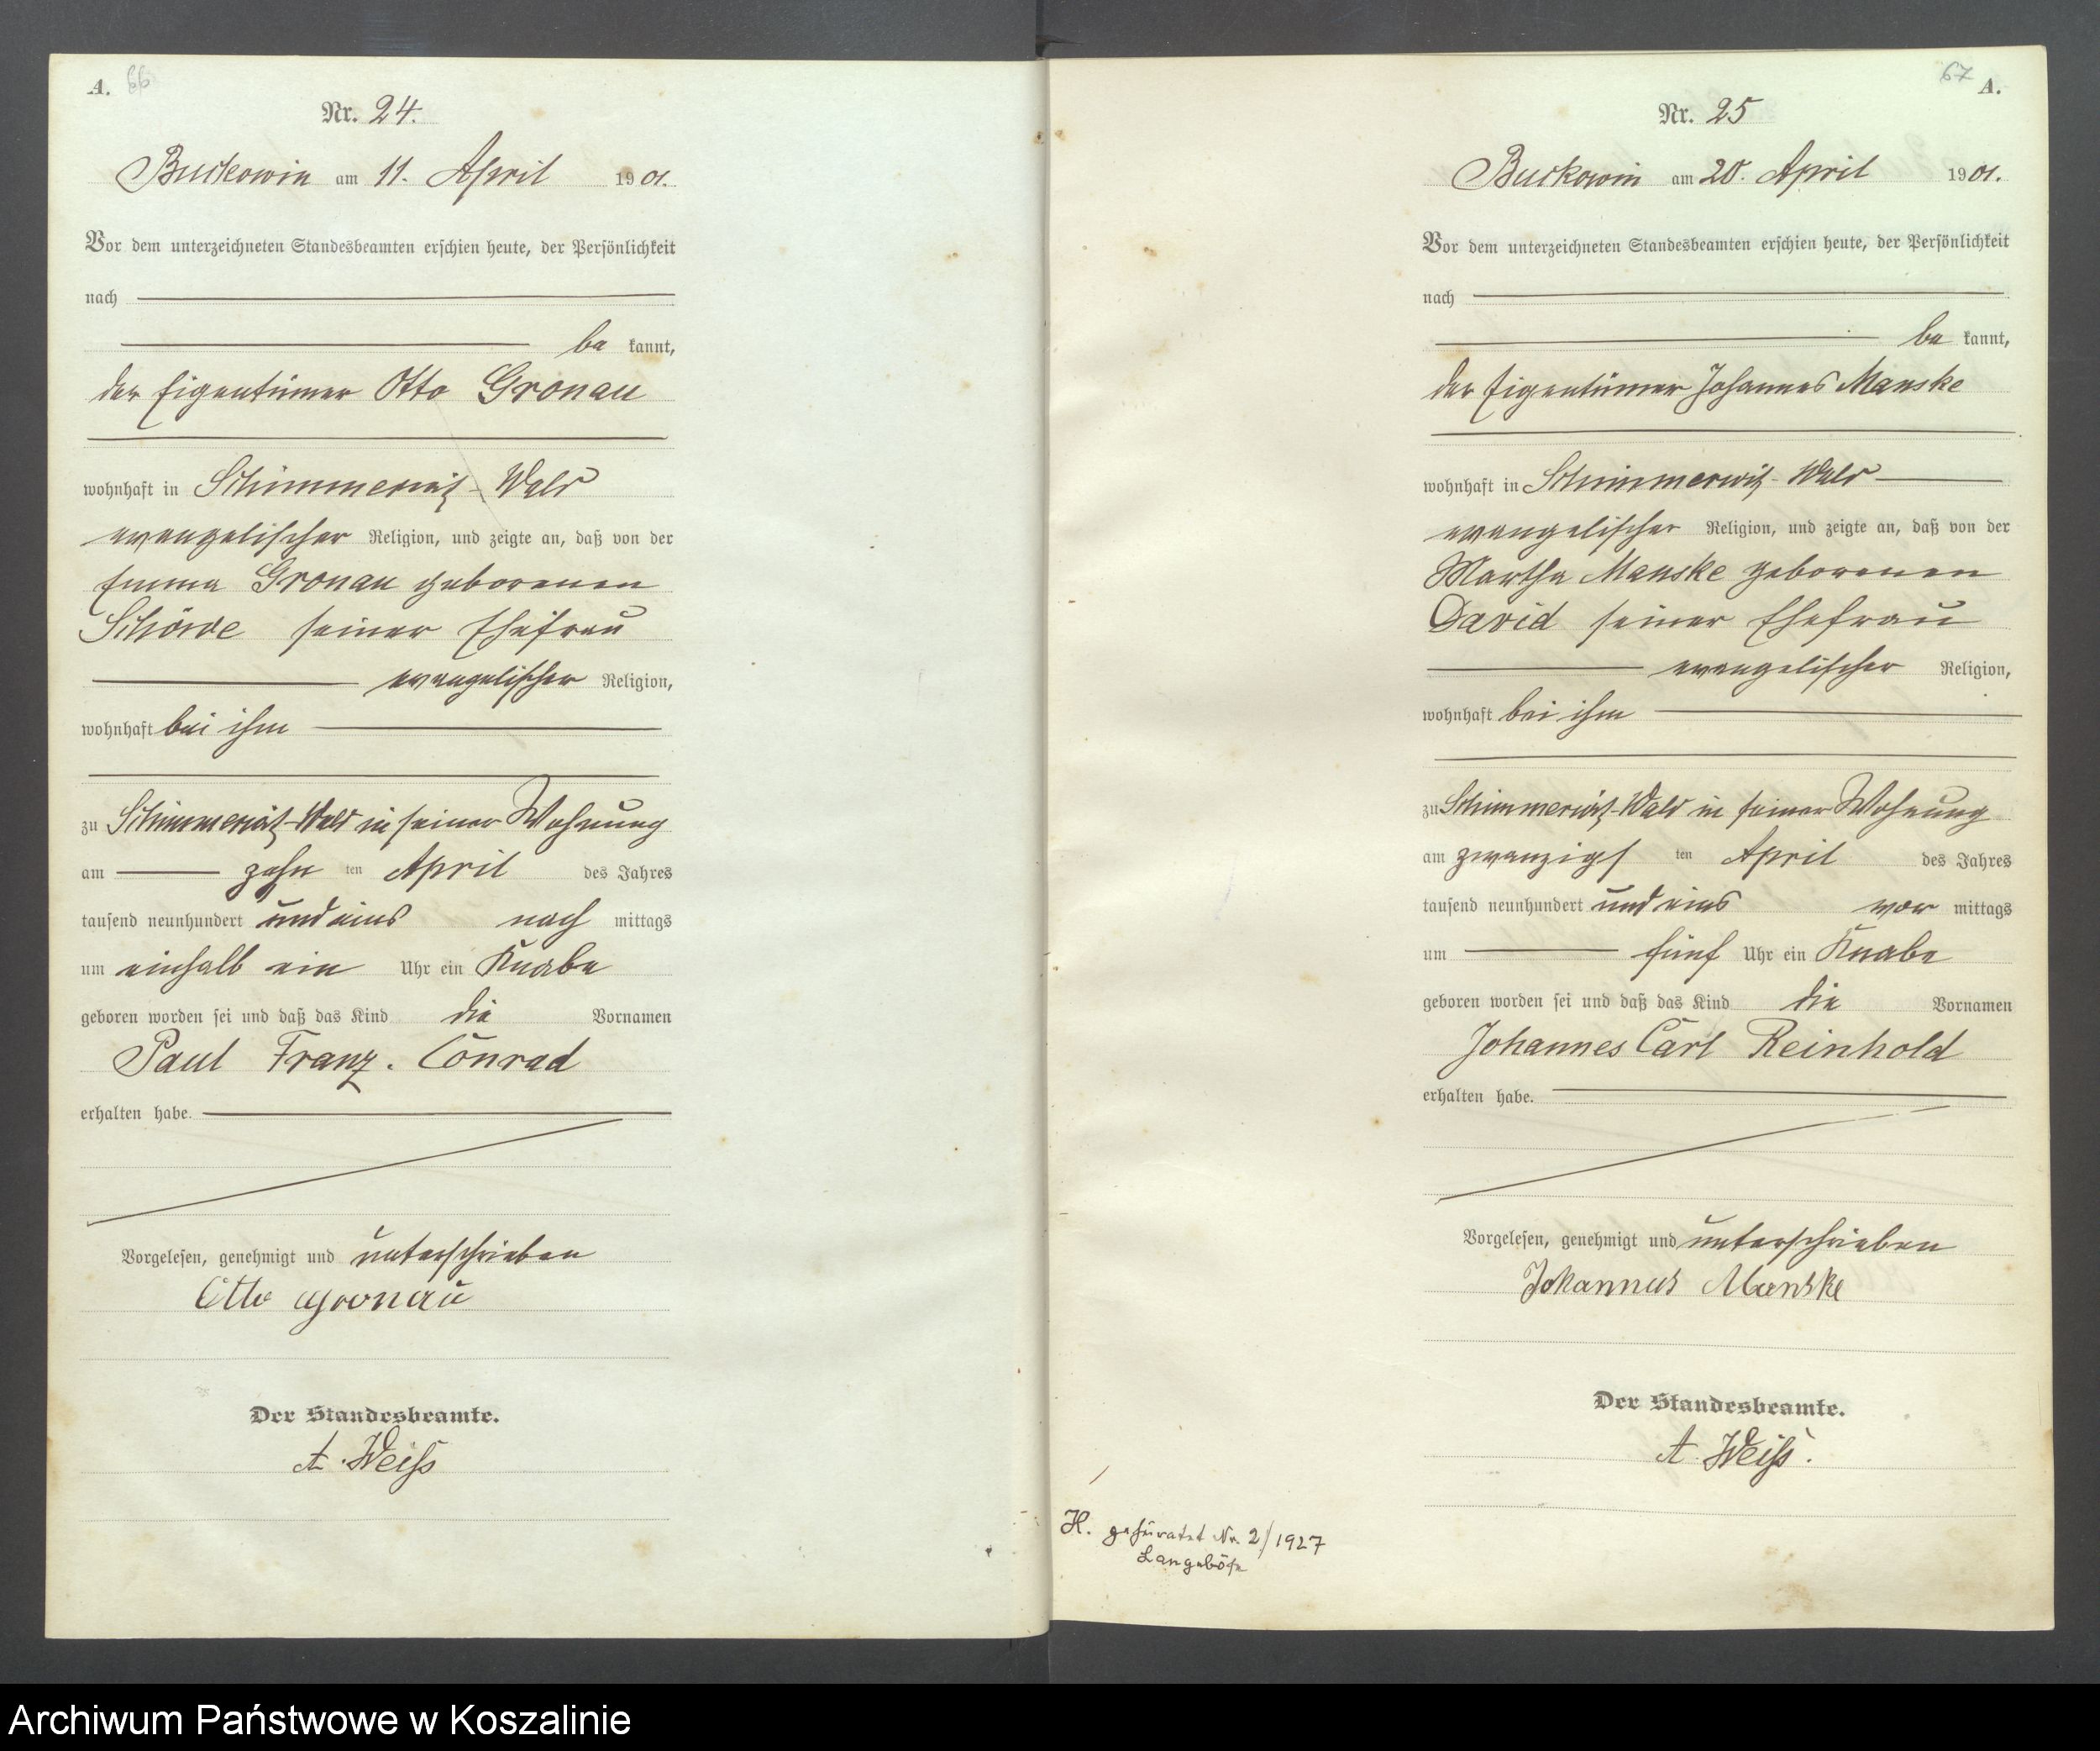 A. 66
Nr. 24.
Buckowin am 11. April 1901.
Vor dem unterzeichneten Standesbeamten erschien heute, der Persönlichkeit
nach
be kannt,
der Eigentümer Otto Gronau
wohnhaft in Schimmerwitz-Wald
evangelischer Religion, und zeigte an, daß von der
Emma Gronau geborenen
Schöwe seiner Ehefrau
evangelischer Religion,
wohnhaft bei ihm
zu Schimmerwitz-Wald in seiner Wohnung
am zehn ten April des Jahres
tausend neunhundert und eins nach mittags
um einhalb ein Uhr ein Knabe
geboren worden sei und daß das Kind die Vornamen
Paul Franz. Conrad
erhalten habe.
Vorgelesen, genehmigt und unterschrieben
Otto Gronau
Der Standesbeamte.
A. Weiß
67 A.
Nr. 25
Buckowin am 20. April 1901.
Vor dem unterzeichneten Standesbeamten erschien heute, der Persönlichkeit
nach
be kannt,
der Eigentümer Johannes Manske
wohnhaft in Schimmerwitz-Wald
evangelischer Religion, und zeigte an, daß von der
Martha Manske geborenen
David seiner Ehefrau
evangelischer Religion,
wohnhaft bei ihm
zu Schimmerwitz-Wald in seiner Wohnung
am zwanzigs ten April des Jahres
tausend neunhundert und eins vor mittags
um fünf Uhr ein Knabe
geboren worden sei und daß das Kind die Vornamen
Johannes Carl Reinhold
erhalten habe.
Vorgelesen, genehmigt und unterschrieben
Johannes Manske
Der Standesbeamte.
A. Weiß.
H. geheiratet Nr. 2/1927
Langeböse
Archiwum Państwowe w Koszalinie